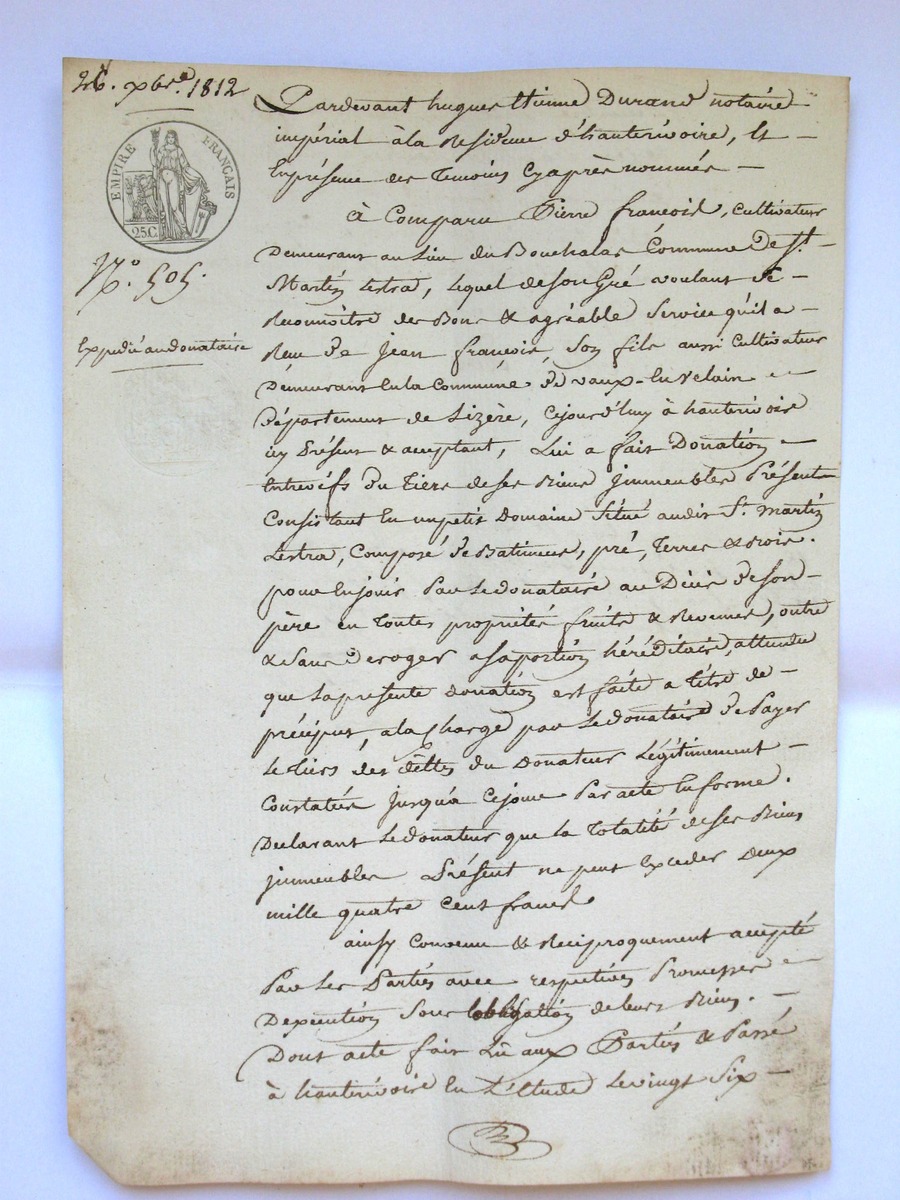 26. xbre. 1812
EMPIRE FRANÇAIS
25C.
No. 505.
Expedié au donataire
Pardevant hugues Etienne Durand notaire
impérial à la Residence d'hauterivoire, Et
En présence des Temoins Cyaprès nommés
à Comparu Pierre françois, Cultivateur
Demeurant au Lieu du Bouchalas Commune de St.
Martin Lestra, Lequel de son Gré voulant Se
Reconnoitre des Bons & agréable Service qu'il a
Reçu de Jean françois, Son fils aussi Cultivateur
Démeurant En la Commune de vaux-En velain
Département de Lizère, Cejourd'huy à hauterivoire
icy Présent & acceptant, Lui a fait Donation
Entrevifs du Tiers de ses Biens Jmmeubles Présents
Consistant En un petit Domaine Situé audit St. Martin
Lestra, Composé de Batiments, pré, Terres & Bois.
pour En jouir Par Le donataire au Décès de son
père en Toutes propriétés fruits & Revenus, outre
& Sans Deroger a Saportion héréditaire, attendu
que Lapresente donation est faite a titre de
préciput, ala Charge par Le donataire de Payer
Le tiers des dèttes du Donateur Légitimement
Constatées jusqu'a Cejour Par acte En forme.
Declarant Le donateur que La Totalité de ses Biens
jmmeubles Présent ne peut Exceder Deux
mille quatre Cent francs.
ainsy Convenu & Reciproquement accepté
Par Les Parties avec respectives Promesses
Dexecution Sous Lobligation de leurs Biens.
Dont acte fait Lû aux Parties & Passé
à hauterivoire En L'Etude Le vingt Six